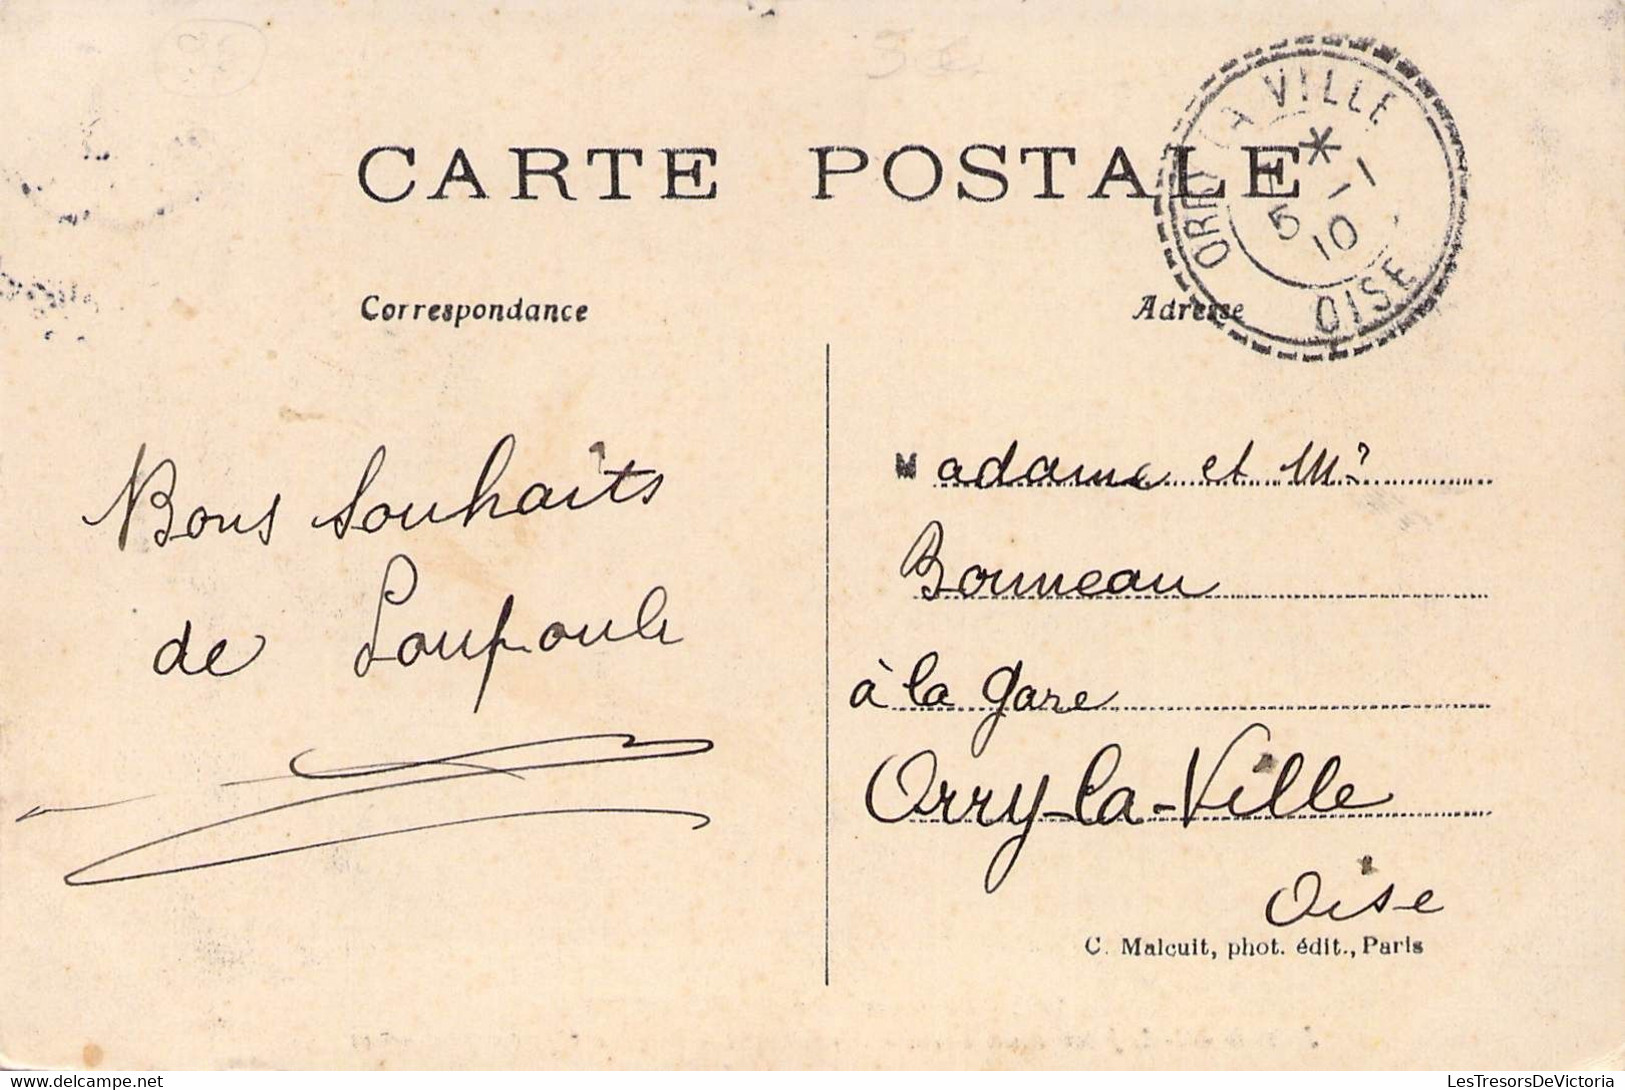 CARTE POSTALE
ORRY LA VILLE
*
5 -1
10
OISE
Correspondance
Adresse
Bons Souhaits
de Loupoule
Madame et Mr
Bonneau
à la gare
Orry-la-Ville
Oise
C. Malcuit, phot. édit., Paris
LesTresorsDeVictoria
delcampe.net